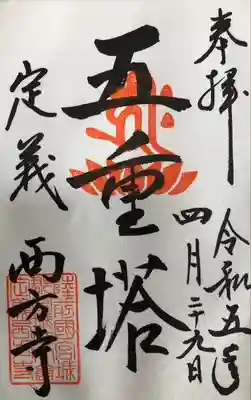 奉拝
令和五年
四月二十九日
五重塔
定義
西方寺